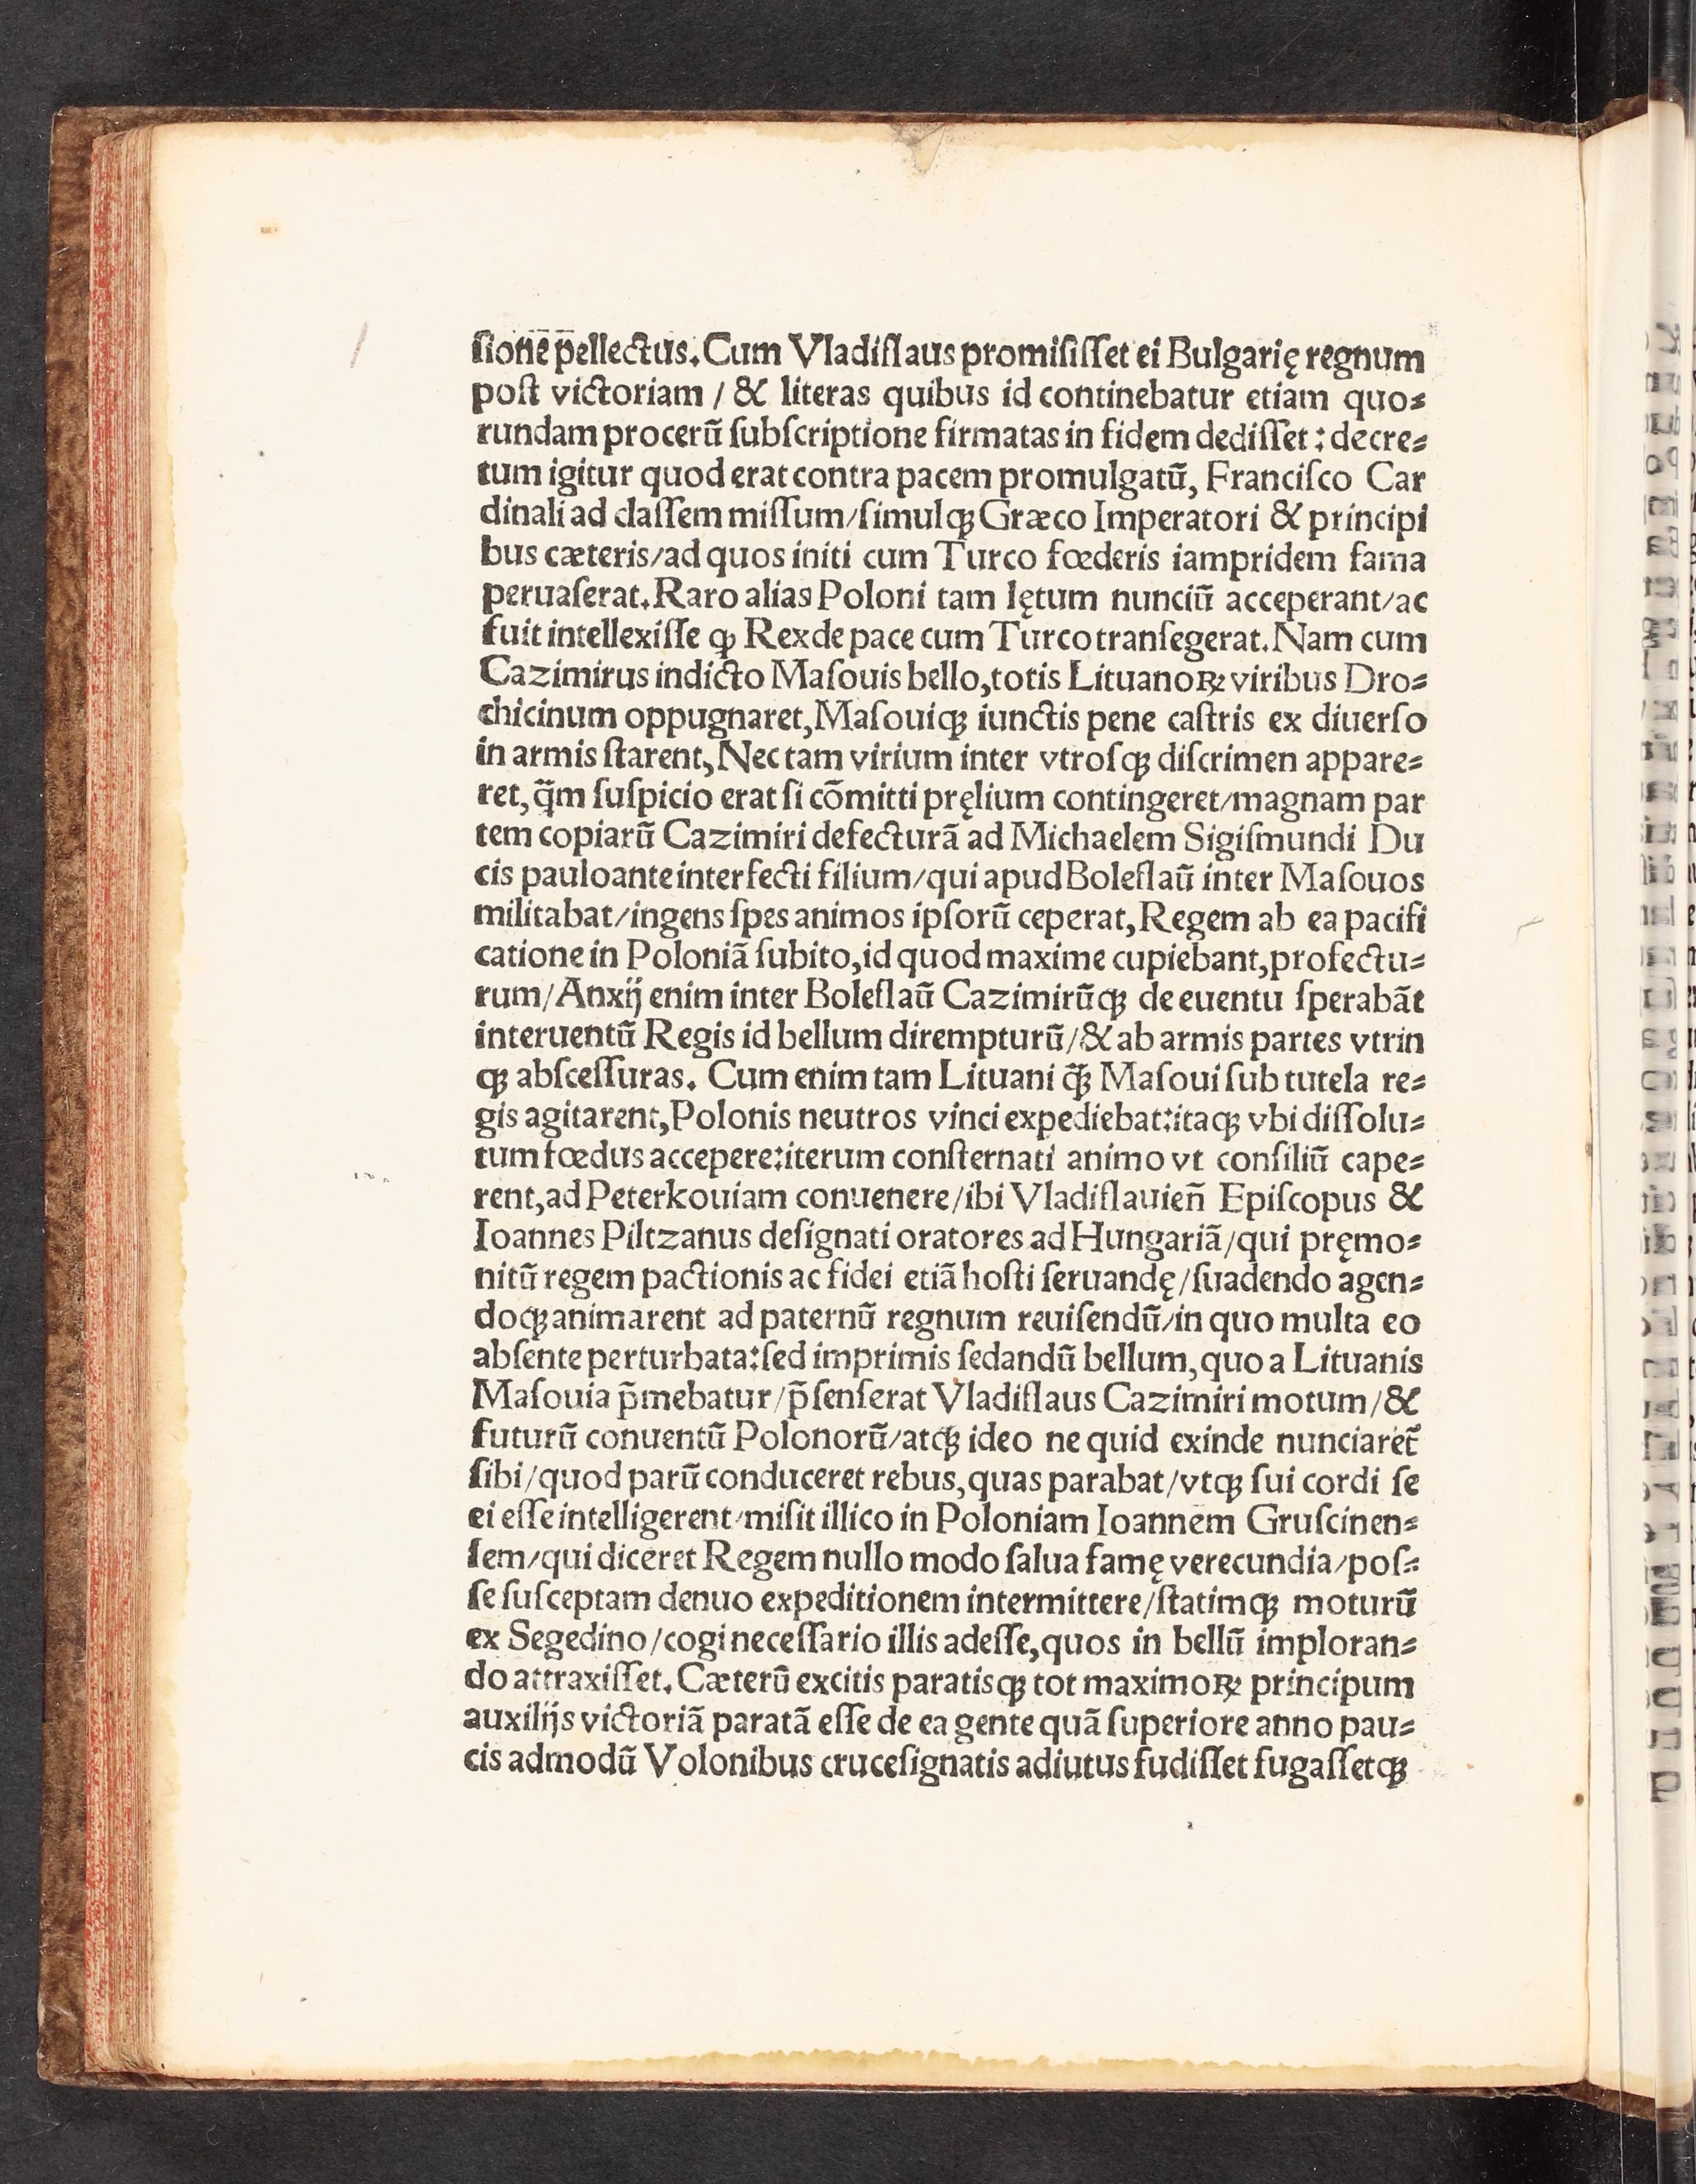 ſionē p̄ellectus. Cum Vladiſlaus promiſiſſet ei Bulgarię regnum
poſt victoriam / & literas quibus id continebatur etiam quo⸗
rundam procerū ſubſcriptione firmatas in fidem dediſſet : decre⸗
tum igitur quod erat contra pacem promulgatū, Franciſco Car
dinali ad claſſem miſſum/ſimulqꝫ Græco Imperatori & principi
bus cæteris/ad quos initi cum Turco fœderis iampridem fama
peruaſerat. Raro alias Poloni tam lętum nunciū acceperant/ac
fuit intellexiſſe ꝙ Rex de pace cum Turco tranſegerat. Nam cum
Cazimirus indicto Maſouis bello, totis Lituanoꝝ viribus Dro⸗
chicinum oppugnaret, Maſouiqꝫ iunctis pene caſtris ex diuerſo
in armis ſtarent, Nec tam virium inter vtroſqꝫ diſcrimen appare⸗
ret, q̄m ſuſpicio erat ſi cōmitti pręlium contingeret/magnam par
tem copiarū Cazimiri defecturā ad Michaelem Sigiſmundi Du
cis pauloante interfecti filium/qui apud Boleſlaū inter Maſouos
militabat/ingens ſpes animos ipſorū ceperat, Regem ab ea pacifi
catione in Poloniā ſubito, id quod maxime cupiebant, profectu⸗
rum/Anxij enim inter Boleſlaū Cazimirūqꝫ de euentu ſperabāt
interuentū Regis id bellum dirempturū/& ab armis partes vtrin
qꝫ abſceſſuras. Cum enim tam Lituani q̄ꝫ Maſoui ſub tutela re⸗
gis agitarent, Polonis neutros vinci expediebat:itaqꝫ vbi diſſolu⸗
tum fœdus accepere:iterum conſternati animo vt conſiliū cape⸗
rent, ad Peterkouiam conuenere/ibi Vladiſlauien̄ Epiſcopus &
Ioannes Piltzanus deſignati oratores ad Hungariā/qui pręmo⸗
nitū regem pactionis ac fidei etiā hoſti ſeruandę/ſuadendo agen⸗
doqꝫ animarent ad paternū regnum reuiſendū/in quo multa eo
abſente perturbata:ſed imprimis ſedandū bellum, quo a Lituanis
Maſouia p̄mebatur/p̄ſenſerat Vladiſlaus Cazimiri motum/&
futurū conuentū Polonorū/atqꝫ ideo ne quid exinde nunciaret᷑
ſibi/quod parū conduceret rebus, quas parabat/vtqꝫ ſui cordi ſe
ei eſſe intelligerent/miſit illico in Poloniam Ioannem Gruſcinen⸗
ſem/qui diceret Regem nullo modo ſalua famę verecundia/poſ⸗
ſe ſuſceptam denuo expeditionem intermittere/ſtatimqꝫ moturū
ex Segedino/cogi neceſſario illis adeſſe, quos in bellū imploran⸗
do attraxiſſet. Cæterū excitis paratisqꝫ tot maximoꝝ principum
auxilijs victoriā paratā eſſe de ea gente quā ſuperiore anno pau⸗
cis admodū Volonibus cruceſignatis adiutus fudiſſet fugaſſetqꝫ